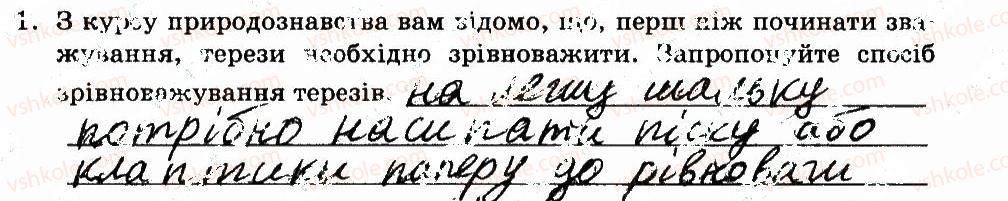 1. З курсу природознавства вам відомо, що, перш ніж починати зва-
жування, терези необхідно зрівноважити. Запропонуйте спосіб
зрівноважування терезів. на легшу шальку
потрібно насипати піску або
клаптики паперу до рівноваги